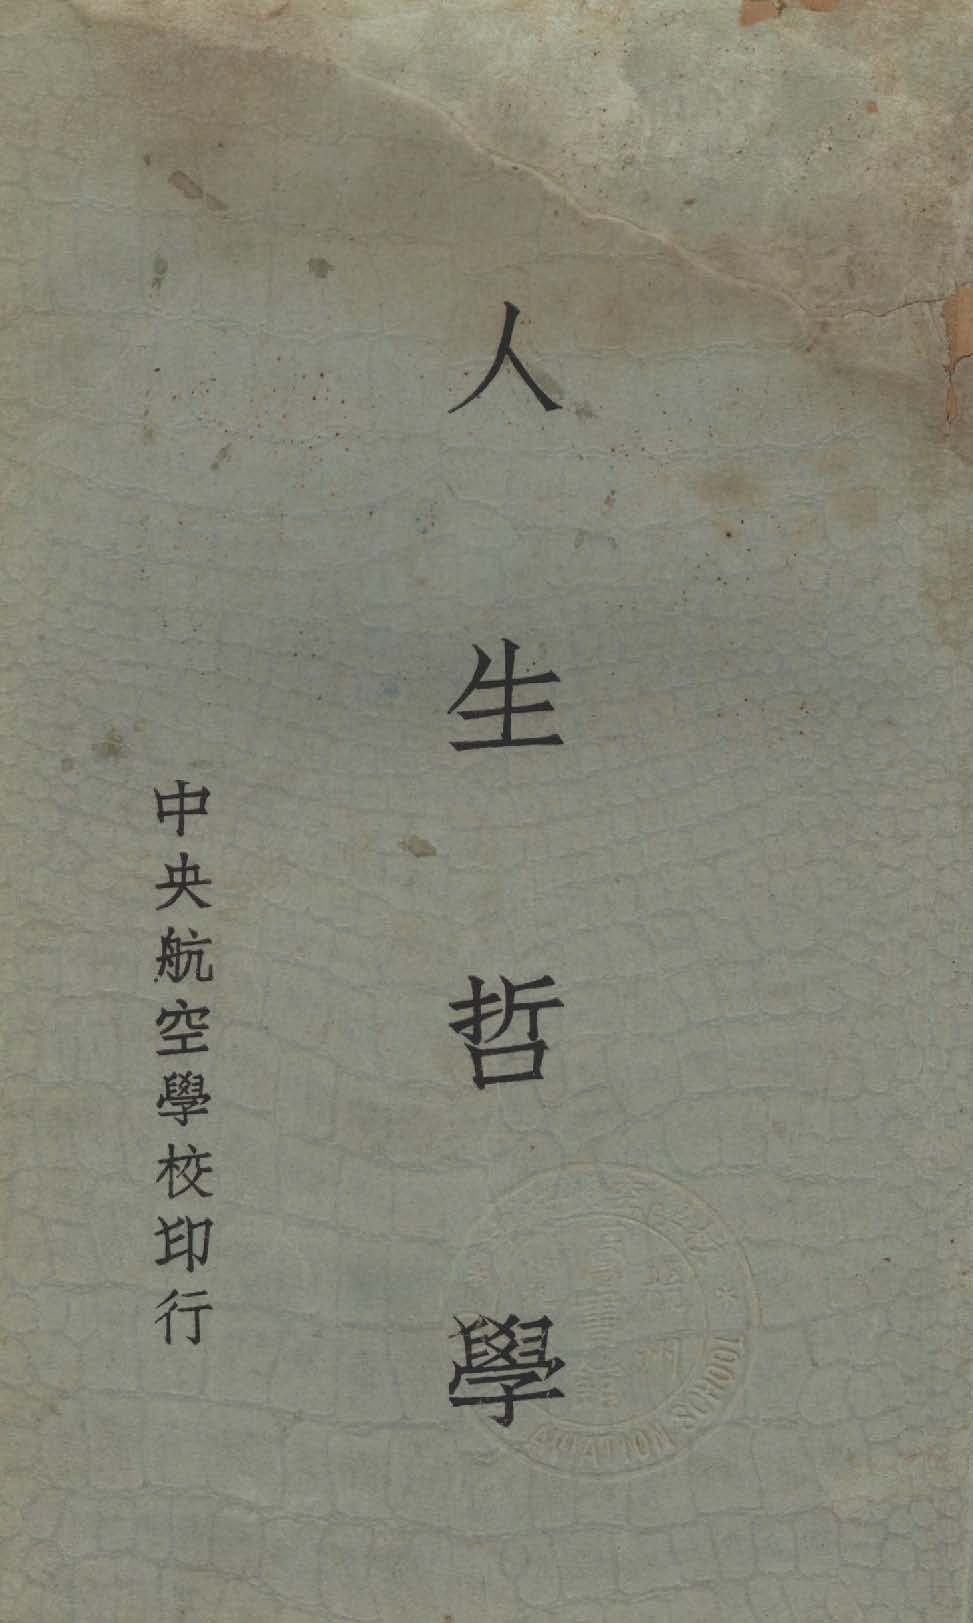 人生哲學
中央航空學校印行
AVIATION SCHOOL